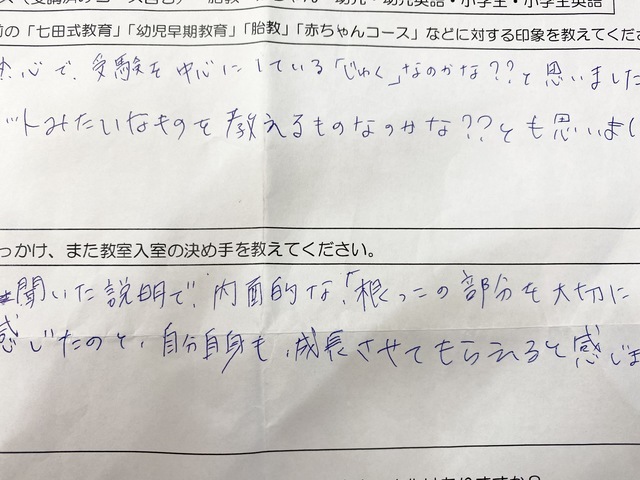 胎教・赤ちゃん・幼児・幼児英語・小学生・小学生英語
前の「七田式教育」「幼児早期教育」「胎教」「赤ちゃんコース」などに対する印象を教えてくださ
熱心で、受験を中心にしている「じゅく」なのかな??と思いました
ットみたいなものを教えるものなのかな??とも思いまし
っかけ、また教室入室の決め手を教えてください。
聞いた説明で、内面的な、「根っこの部分を大切に
感じたのと、自分自身も、成長させてもらえると感じま